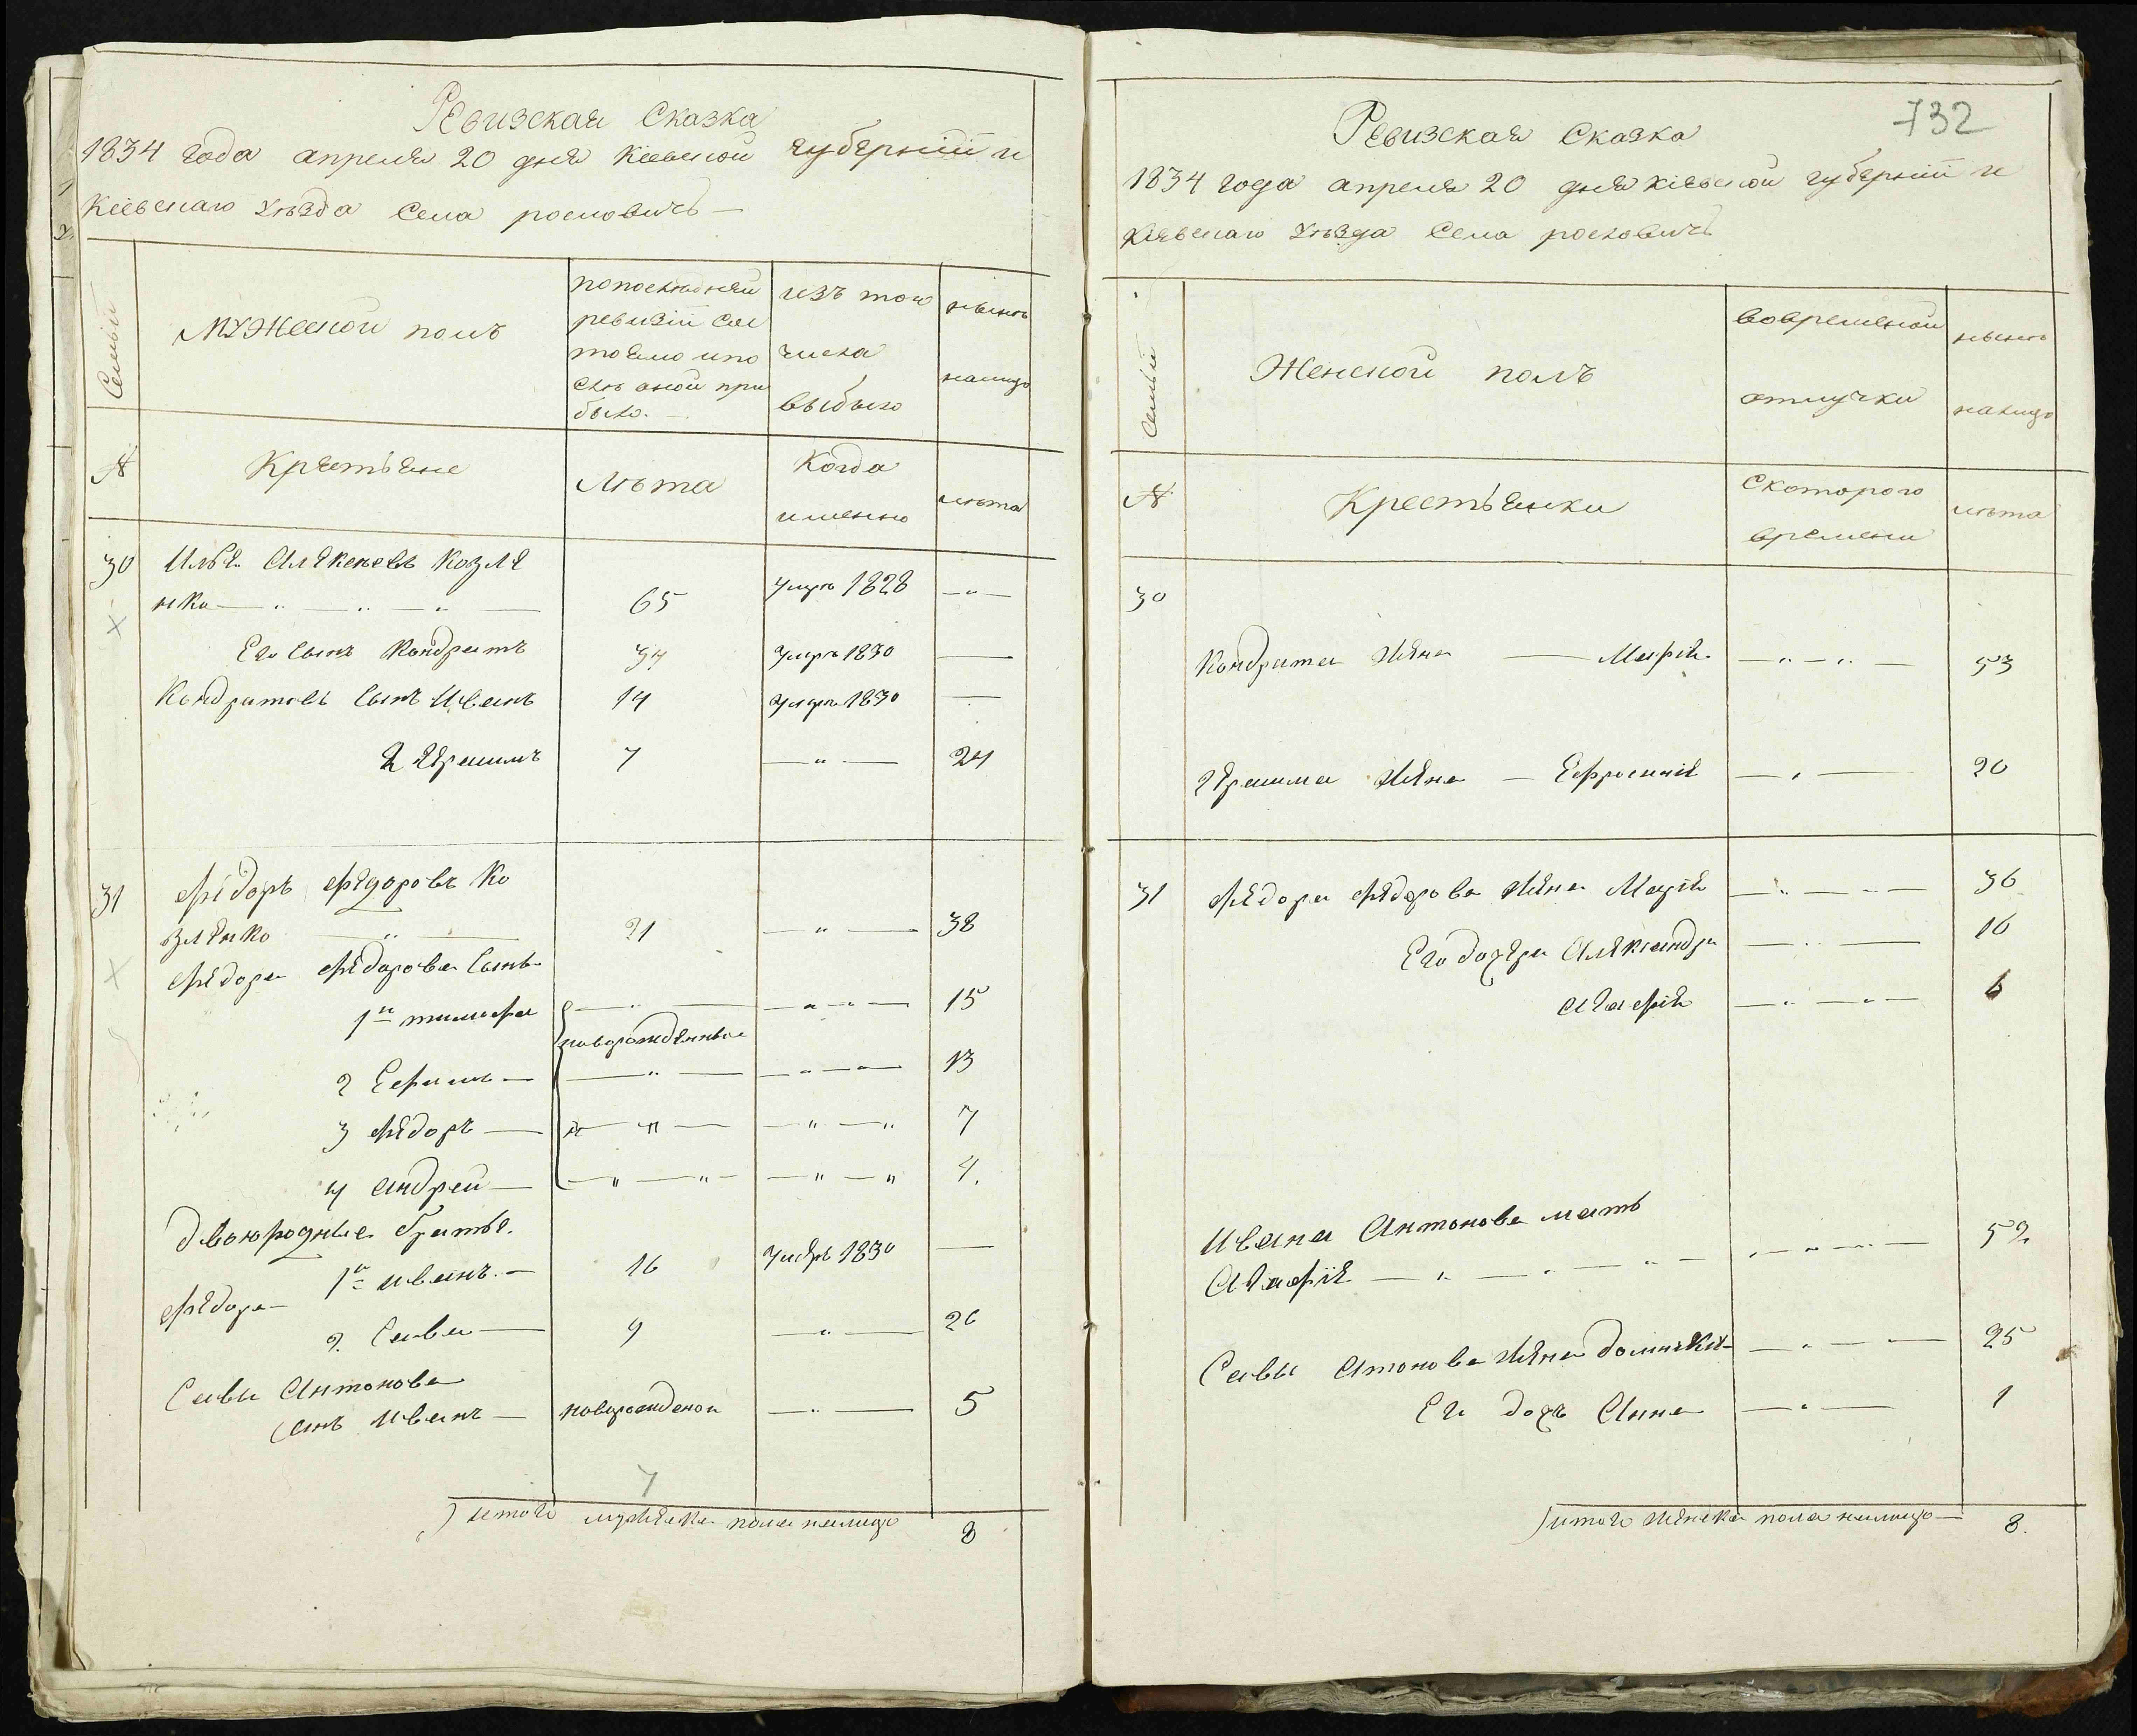 Ревизская Сказка
1834 года апреля 20 дня Кіевской губерніи и
Кіевскаго уѣзда Села росновичь —
Семьи
Мужеской полъ
попоследней
ревизіи сос
тояло ипо
слѣ оной при
было. —
изъ того
числа
выбыло
нынѣ
налицо
№
Крестьяне
лѣта
Когда
именно
лѣта
30 Илья Алексеевъ Козле
нко — 65 умръ 1828 — " —
Его Сынъ Кондратъ 34 умръ 1830 —
Кондратовъ Сынъ Иванъ 14 умръ 1830 —
2 Герасимъ 7 — " — 24
31 Фёдоръ Фёдоровъ Ко
зленко — " — 21 — " — 38
Фёдора Фёдорова Сынъ
1й тимофей — 15
новорожденные
2 Ефимъ — 13
3 Фёдоръ — 7
4 Андрей — 4.
Двоюродные братья
Фёдора 1й иванъ. — 16 умръ 1830 —
2. Сава — 9 — " — 26
Савы Антонова
Сынъ Иванъ — новорожденой — " — 5
7
итого мужеска пола налицо 8
732
Ревизская Сказка
1834 года апреля 20 дня Кіевской губерніи и
Кіевскаго уѣзда Села росновичь
Семьи
Женской полъ
вовременой
отлучки
нынѣ
налицо
№
Крестьянки
Скоторого
времени
лѣта
30
Кондрата Жена — Марія — " — " — 53
Герасима Жена — Ефросинія — " — 20
31 Фёдора Фёдорова Жена Марія — " — " — 36
Его дочери Александра — " — 16
Агафія — " — " — 6
Ивана Антонова мать
Агафія — " — " — 52
Савы Антонова Жена — " — " — 25
Его дочь Анна — " — 1
итого Женска пола налицо — 8.